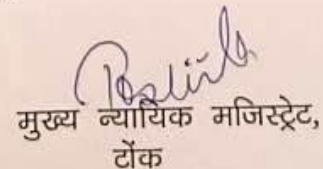 मुख्य न्यायिक मजिस्ट्रेट,
टोंक